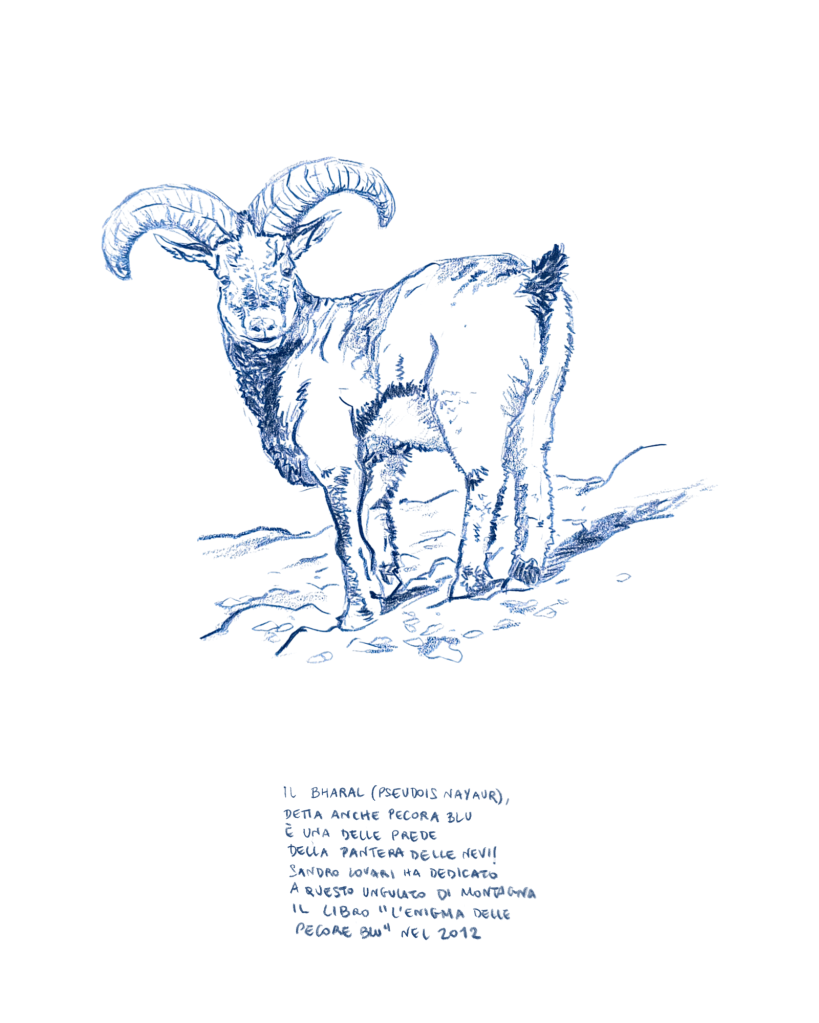 IL BHARAL (PSEUDOIS NAYAUR),
DETTA ANCHE PECORA BLU
È UNA DELLE PREDE
DELLA PANTERA DELLE NEVI!
SANDRO LOVARI HA DEDICATO
A QUESTO UNGULATO DI MONTAGNA
IL LIBRO "L'ENIGMA DELLE
PECORE BLU" NEL 2012